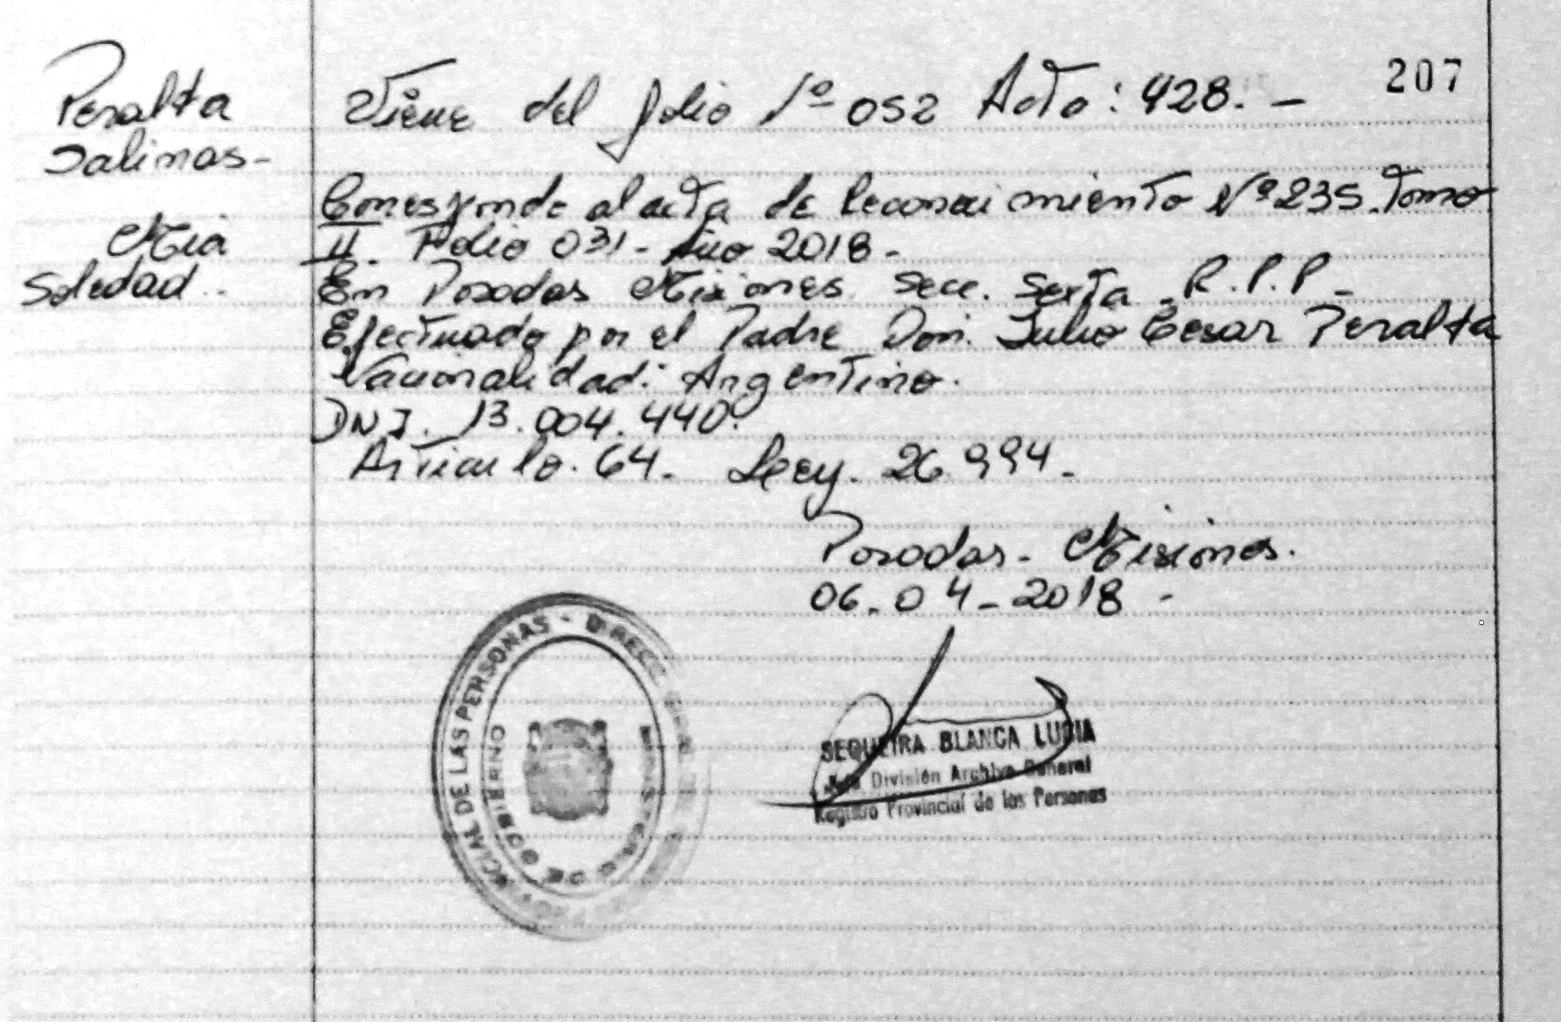 207
Peralta
Salinas -
Mia
Soledad..
Viene del folio Nº 052 Acta: 428. -
Corresponde al acta de Reconocimiento Nº 235. Tomo
II. Folio 031 - Año 2018 -
En Posadas Misiones. Secc. Sexta - R.P.P -
Efectuado por el Padre Don. Julio Cesar Peralta
Nacionalidad: Argentino.
DNI. 13.004.440.
Articulo. 64. Ley. 26.994 -
Posadas - Misiones.
06-04-2018 -
DE LAS PERSONAS -
DE GOBIERNO
SEQUEIRA BLANCA LUCIA
Jefa División Archivo General
Registro Provincial de las Personas